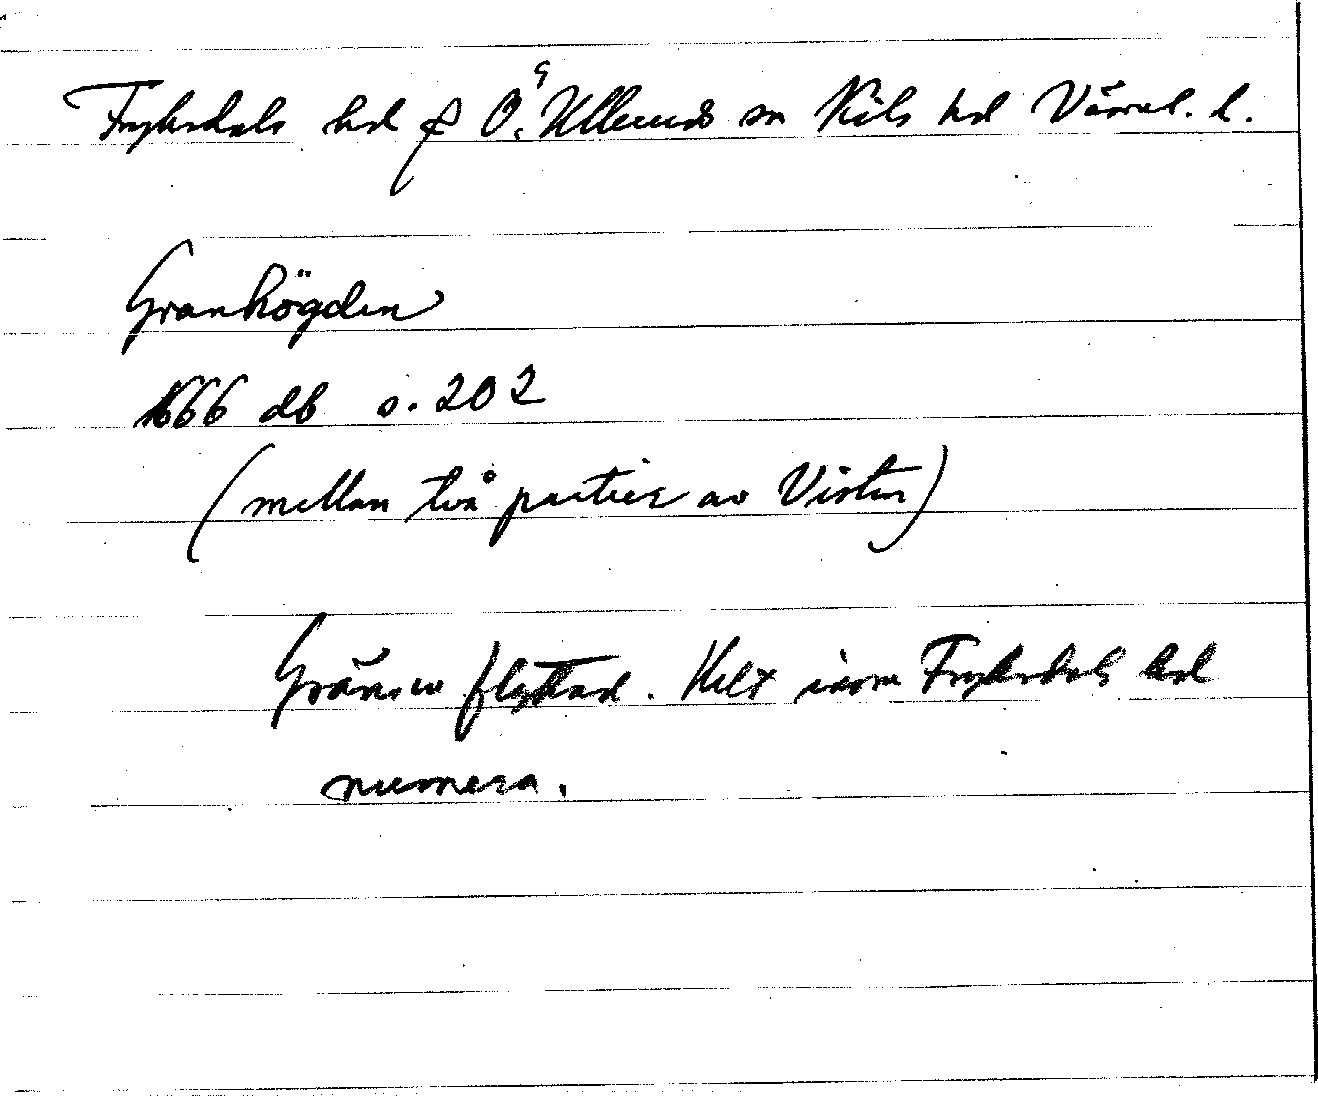 Fryksdals hd f Ö. Ullerud sn Kils hd Värml. l.
Granhögden
1666 db s. 202
(mellan två partier av Visten)
Gränsen flyttad. Helt inom Fryksdals hd
numera.